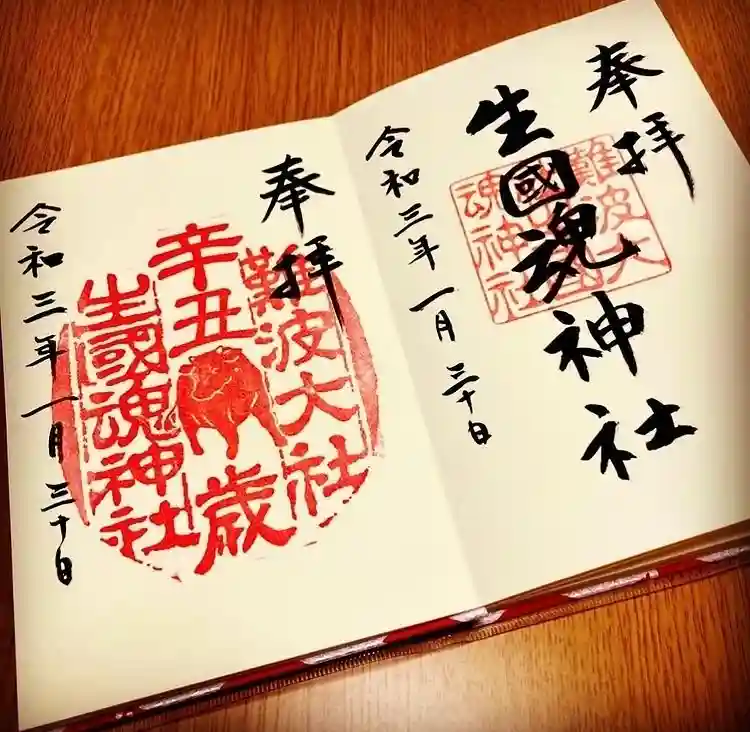 奉拝
生國魂神社
難波大
魂神社
令和三年一月三十日
奉拝
難波大社
辛丑
歳
生國魂神社
令和三年一月三十日